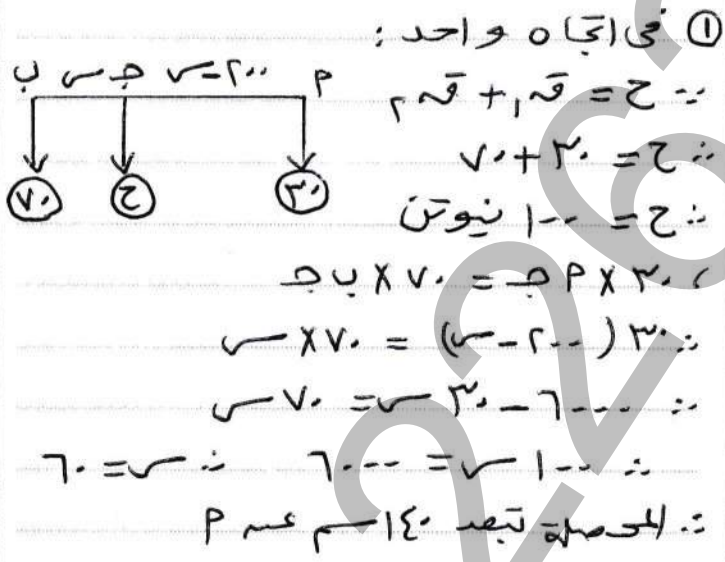 ① فى اتجاه واحد :
م ٢٠٠-س جـ س ب
٣٠ ح ٧٠
∵ ح = ق١ + ق٢
∴ ح = ٣٠ + ٧٠
∴ ح = ١٠٠ نيوتن
، ٣٠ × م جـ = ٧٠ × ب جـ
∴ ٣٠ (٢٠٠ - س) = ٧٠ × س
∴ ٦٠٠٠ - ٣٠ س = ٧٠ س
∴ ١٠٠ س = ٦٠٠٠ ∴ س = ٦٠
∴ المحصلة تبعد ١٤٠ سم عن م